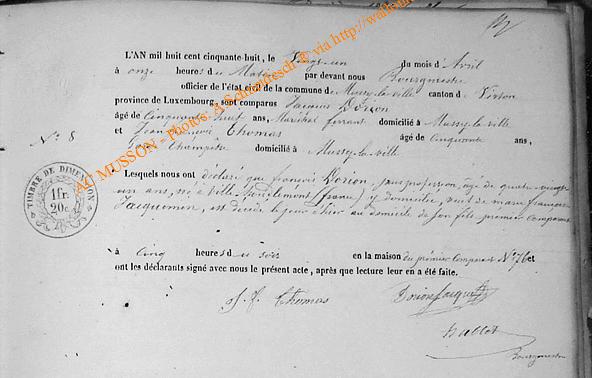 L'AN mil huit cent cinquante-huit, le Vingt-un du mois d'Avril
à onze heures du Matin par devant nous Bourgmestre
officier de l'état civil de la commune de Mussy-la-ville canton de Virton
province de Luxembourg, sont comparus Jacques Dorion
âgé de Cinquante neuf ans, Maréchal ferrant domicilié à Mussy-la-ville
N° 8
et Jean Thomas âgé de Cinquante ans,
Garde Champêtre domicilié à Mussy-la-ville
Lesquels nous ont déclaré que françois Dorion, sans profession, âgé de quatre vingt
un ans, né à ville (france) y domicilié, veuf de marie françoise
Jacquemin, est décédé le jour d'hier au domicile de son fils premier comparant
à Cinq heures du soir en la maison du premier Comparant N° 76 et
ont les déclarants signé avec nous le présent acte, après que lecture leur en a été faite.
TIMBRE DE DIMENSION
1 fr.
20 c.
J. f. Thomas
Dorion Jacques
hallet
Bourgmestre
AC MUSSON - Photos: A. Schmidesch © via http://walhain